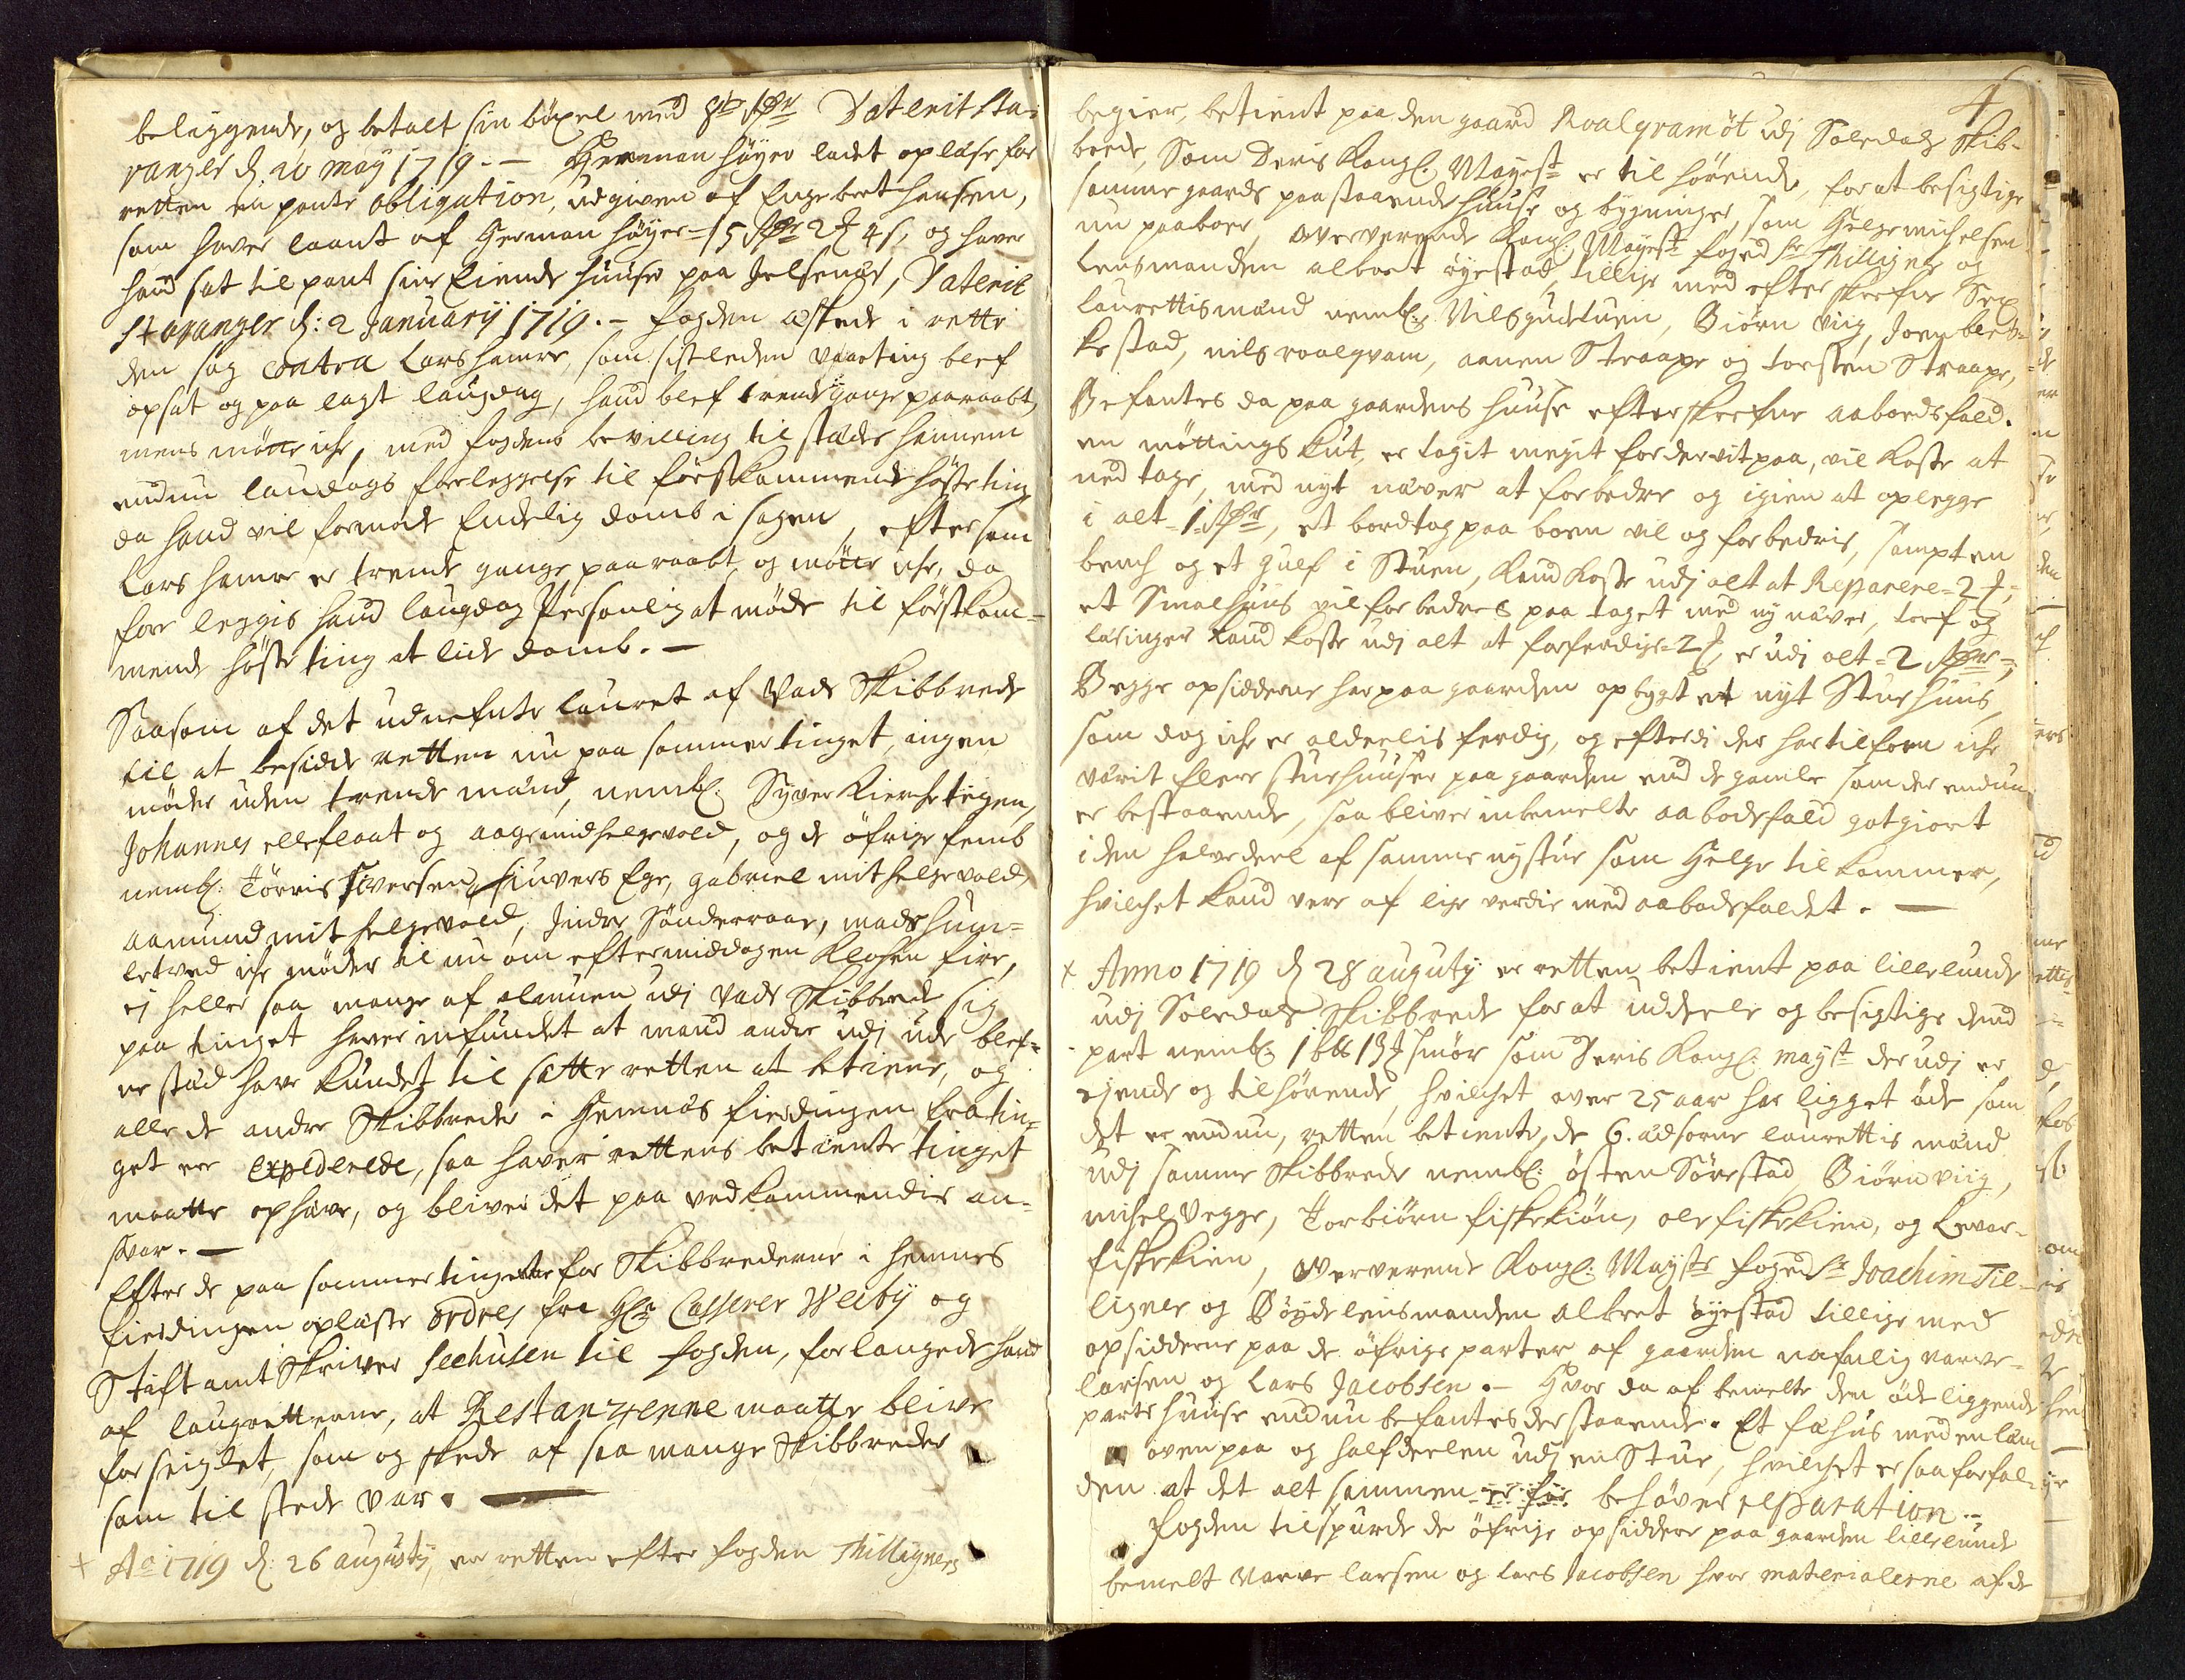 beliggende, og betalt sin böxel med Daterit Sta-
vanger d. 20 may 1719. — Herman höyer ladet oplæse for
retten en pante obligation, udgiven af Engebret hansen,
som haver laant af Herman höyer = 15 2 4 s, og haver
hand sat til pant sine Eiende huuse paa Jelsenæs, Daterit
Stavanger d: 2 January 1719. — fogden æskede i rette
den sag Contra Lars hamre, som sistleden vaarting blef
opsat og paa lagt laugdag, hand blef trende gange paaraabt,
mens mötte iche, med fogdens bevilling til stædes hannem
endnu laudags forleggelse til förstkommende höste ting
da hand vil formode Endelig domb i sagen, eftersom
Lars hamre er trende gange paaraabt, og mötte iche, da
fore leggis hand laugdag Personlig at møde til förstkom-
mende höste ting at lide domb. —
Saasom af det udnefnte lauret af Vads Skibbrede
til at beside retten nu paa sommertinget, ingen
möder uden trende mænd, nembl: Syver Kircheteigen,
Johannes ellefloat og aage midhelgevold, og de öfrige femb
nembl: Törris Siversen Sinvers Ege, gabriel mithelgevold,
aamund mit helgevold, Indre Sönderraae, mads hum-
letved iche möder til nu om eftermiddagen Klochen fire,
ej heller saa mange af almuen udj Vads Skibbrede sig
paa tinget haver infundet at mand andre udj ude blef-
ne stæd have kundet til sætte retten at betiene, og
alle de andre Skibbreder i Hemnæs fierdingen fra tin-
get ere Expederede, saa haver rettens betiente tinget
maatte ophæve, og bliver det paa vedkommendis an-
svar. —
Efter de paa sommertingene for Skibbrederne i hemnes
fierdingen oplæste ordres fra Hr Casserer Weiby og
Stiftamt Skriver Seehusen til fogden, forlangede hand
af laugretterne, at Restanzerne maatte blive
forseiglet, som og skede af saa mange Skibbreder
som til stede var. —
+ Ao 1719 d: 26 augusty, er retten efter fogden Thillignes
4
begier, betient paa den gaard Roalqvam öt udj Söledals Skib-
brede, Som Deris Kongl: Mayest er til hörende, for at besigtige
samme gaards paastaaende huuse og bygninger, som Helge michelsen
nu paaboer, oververende Kongl: Mayest foged Sr Thilligner og
Lensmanden albret öyestad, tillige med efter skrefne Sex
laurettismænd nembl: Nils gudetuen, Biörn viig, Joen bleb-
kestad, nils roalqvam, aanen Straape og torsten Straape,
Befantes da paa gaardens huuse efterskrefne aabodsfald.
en möttings kut, er taget megit fordervit paa, vil koste at
ned tage, med nyt næver at forbedre og igien at oplegge
i alt = 1, et bordtag paa boen vil og forbedris, sampt en
bench og et gulf i Stuen, kand koste udj alt at Reparere = 2,
et Smalhuus vil forbedres paa taget med ny næver, torf og
læringer kand koste udj alt at forferdige = 2, er udj alt = 2,
Begge opsidderne har paa gaarden opbygt et nyt Stuehuus,
som dog iche er aldeelis ferdig, og efterdi der har tilforn iche
værit flere stuehuuser paa gaarden end de gamle som der endnu
er bestaaende, saa bliver inbemelte aabodsfald gotgiort
i den halvedeel af samme nystue som Helge tilkommer,
hvilchet kand vere af lige verdie med aabodsfaldet. —
+ Anno 1719 d 28 auguty er retten betient paa lillelunde
udj Söledals Skibbrede for at uddeele og besigtige dend
part nembl: 1 smör som Deris Kongl: mayst der udj er
ejende og tilhörende, hvilchet over 25 aar har ligget öde som
det er endnu, retten betiente, de 6. ædsorne laurettis mænd
udj samme Skibbrede nembl: östen Sörestad, Biörn viig,
michel Vegge, Torbiörn fiskekiön, ole fiskekien, og Levar
fiskekien, Oververende Kongl: Mayts foged Sr Joachim Til-
ligner og Böyde lensmanden albret öyestad tillige med
opsidderne paa de öfrige parter af gaarden nafnlig narve
larsen og Lars Jacobsen. — Hvor da af bemelte den öde liggende
parts huuse endnu befantes der staaende. Et fæhus med en læm
oven paa og halfdeelen udj en Stue, hvilchet er saa forfal-
den at det alt sammen behöver reparation. —
Fogden tilspurde de öfrige opsiddere paa gaarden lillelunde
bemelt narve larsen og Lars Jacobsen hvor materialerne af de